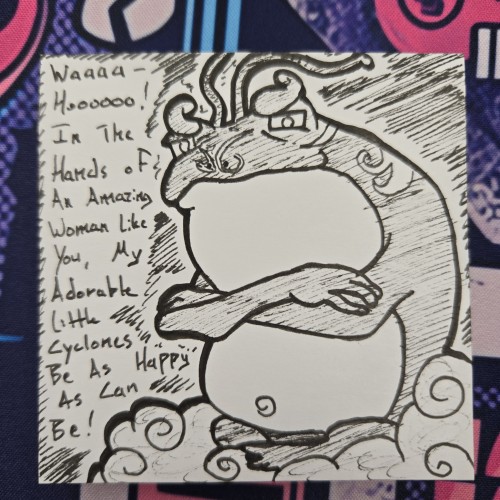 Waaaa-
Hoooooo!
In The
Hands of
An Amazing
Woman Like
You, My
Adorable
Little
Cyclones
Be As "Happy"
As Can
Be!